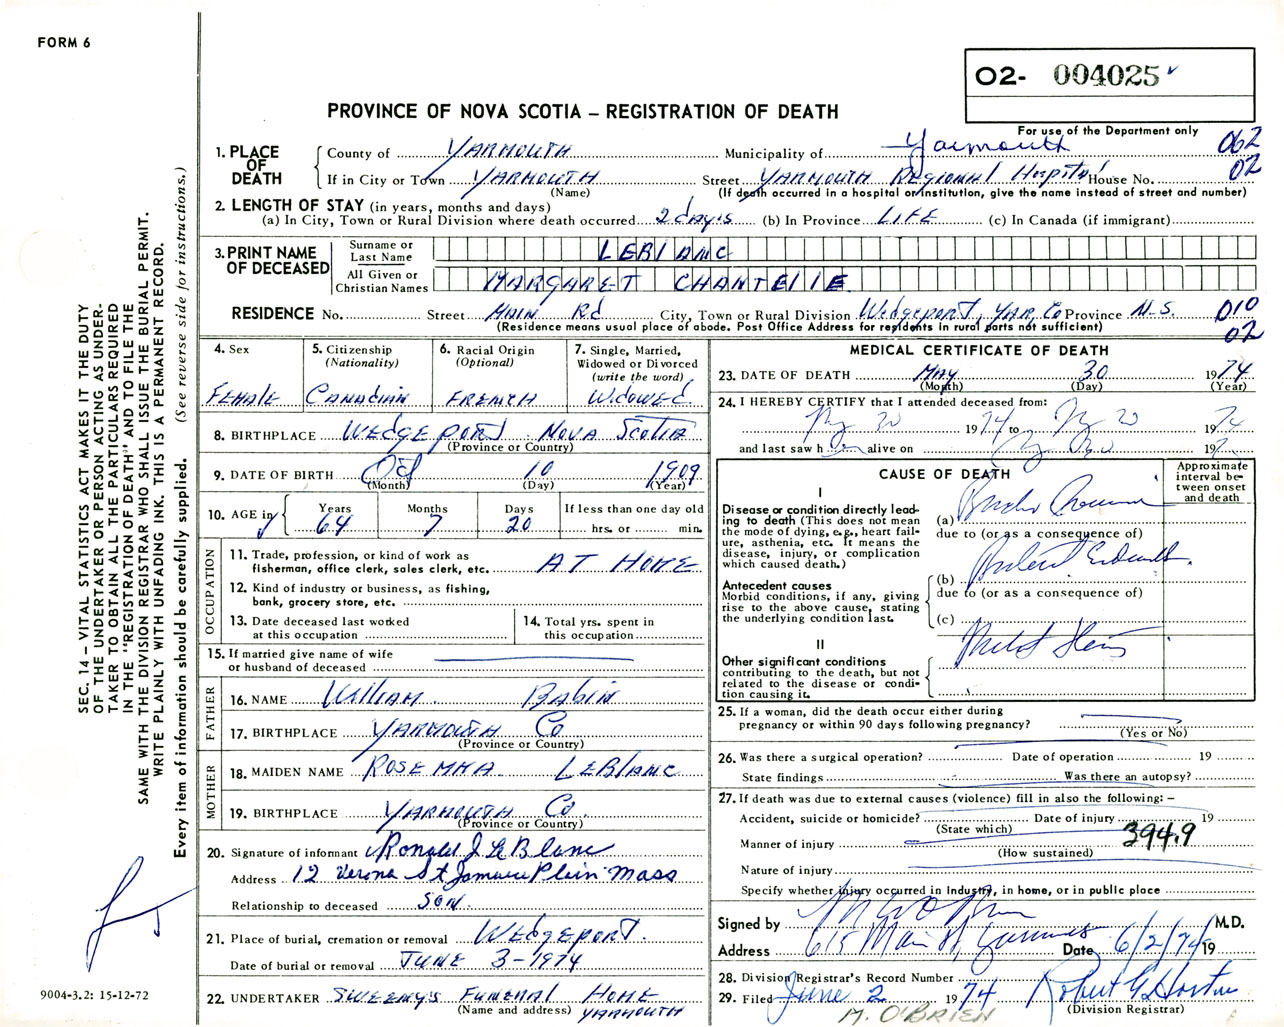 FORM 6
O2- 004025
PROVINCE OF NOVA SCOTIA – REGISTRATION OF DEATH
For use of the Department only
1. PLACE OF DEATH
County of YARMOUTH Municipality of Yarmouth 062
If in City or Town YARMOUTH Street YARMOUTH REGIONAL Hospital House No. 02
(Name) (If death occurred in a hospital or institution, give the name instead of street and number)
2. LENGTH OF STAY (in years, months and days)
(a) In City, Town or Rural Division where death occurred 2 days (b) In Province LIFE (c) In Canada (if immigrant)
3. PRINT NAME OF DECEASED
Surname or Last Name LEBLANC
All Given or Christian Names MARGARET CHANTELLE
RESIDENCE No. Street MAIN Rd City, Town or Rural Division Wedgeport, YAR. Co Province N.S. 010
(Residence means usual place of abode. Post Office Address for residents in rural parts not sufficient) 02
4. Sex
Female
5. Citizenship (Nationality)
Canadian
6. Racial Origin (Optional)
FRENCH
7. Single, Married, Widowed or Divorced (write the word)
Widowed
8. BIRTHPLACE WEDGEPORT NOVA SCOTIA
(Province or Country)
9. DATE OF BIRTH Oct 10 1909
(Month) (Day) (Year)
10. AGE in Years Months Days If less than one day old
64 7 20 hrs. or min.
OCCUPATION
11. Trade, profession, or kind of work as fisherman, office clerk, sales clerk, etc. AT HOME
12. Kind of industry or business, as fishing, bank, grocery store, etc.
13. Date deceased last worked at this occupation
14. Total yrs. spent in this occupation
15. If married give name of wife or husband of deceased
FATHER
16. NAME William Babin
17. BIRTHPLACE YARMOUTH Co
(Province or Country)
MOTHER
18. MAIDEN NAME ROSE MMA LEBLANC
19. BIRTHPLACE YARMOUTH Co.
(Province or Country)
20. Signature of informant Ronald J LeBlanc
Address 12 Verona St Jamaica Plain Mass
Relationship to deceased SON
21. Place of burial, cremation or removal WEDGEPORT.
Date of burial or removal JUNE 3-1974
22. UNDERTAKER SWEENY'S FUNERAL HOME
(Name and address) YARMOUTH
MEDICAL CERTIFICATE OF DEATH
23. DATE OF DEATH May 30 1974
(Month) (Day) (Year)
24. I HEREBY CERTIFY that I attended deceased from:
1974 to 1974
and last saw h alive on 19
CAUSE OF DEATH
Approximate interval between onset and death
I
Disease or condition directly leading to death (This does not mean the mode of dying, e.g., heart failure, asthenia, etc. It means the disease, injury, or complication which caused death.)
(a)
due to (or as a consequence of)
Antecedent causes
Morbid conditions, if any, giving rise to the above cause, stating the underlying condition last.
(b)
due to (or as a consequence of)
(c)
II
Other significant conditions contributing to the death, but not related to the disease or condition causing it.
25. If a woman, did the death occur either during pregnancy or within 90 days following pregnancy?
(Yes or No)
26. Was there a surgical operation? Date of operation 19
State findings Was there an autopsy?
27. If death was due to external causes (violence) fill in also the following: –
Accident, suicide or homicide? Date of injury 19
(State which)
Manner of injury 394.9
(How sustained)
Nature of injury
Specify whether injury occurred in Industry, in home, or in public place
Signed by M.D.
Address 615 Main St, Yarmouth Date 6/2/74 19
28. Division Registrar's Record Number
29. Filed June 2 1974
(Division Registrar)
M. O'BRIEN
SEC. 14 – VITAL STATISTICS ACT MAKES IT THE DUTY
OF THE UNDERTAKER OR PERSON ACTING AS UNDER-
TAKER TO OBTAIN ALL THE PARTICULARS REQUIRED
IN THE "REGISTRATION OF DEATH" AND TO FILE THE
SAME WITH THE DIVISION REGISTRAR WHO SHALL ISSUE THE BURIAL PERMIT.
WRITE PLAINLY WITH UNFADING INK. THIS IS A PERMANENT RECORD.
Every item of information should be carefully supplied. (See reverse side for instructions.)
9004-3.2: 15-12-72